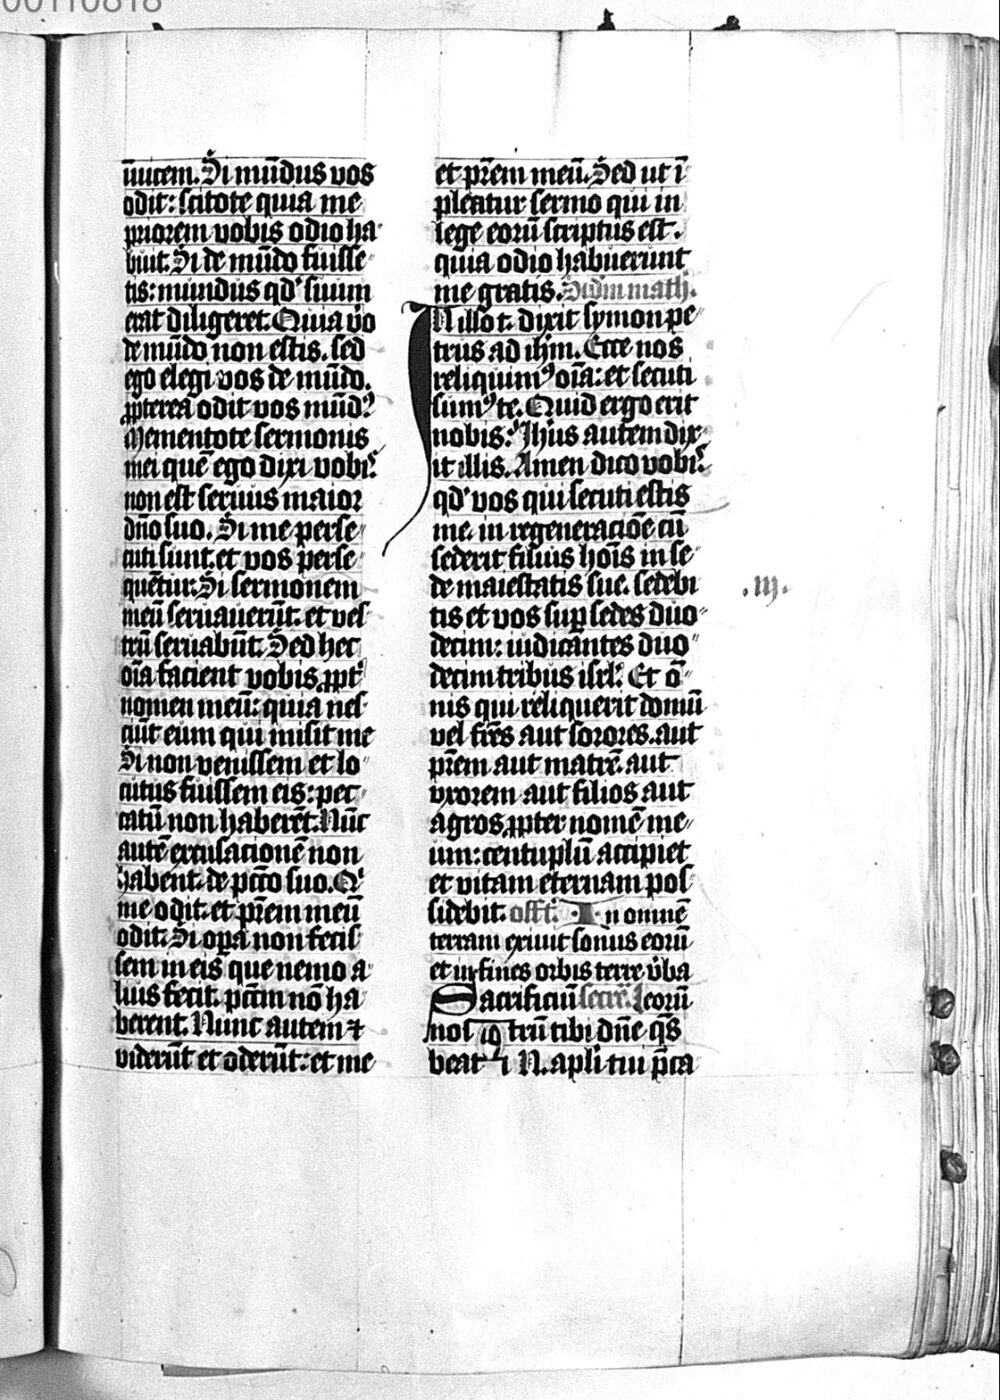 00110818
īuicem. Si mūdus vos
odit: scitote quia me
priorem vobis odio ha
buit. Si de mūdo fuisse
tis: mundus qd' suum
erat diligeret. Quia v̄o
de mūdo non estis. sed
ego elegi vos de mūdo.
ꝓpterea odit vos mūdꝰ
Mementote sermonis
mei quē ego dixi vobis.
non est seruus maior
dn̄o suo. Si me perse
cuti sunt. et vos perse
quētur. Si sermonem
meū seruauerūt. et ves
trū seruabūt. Sed hec
oīa facient vobis ꝓpt'
nomen meū: quia nes
ciūt eum qui misit me
Si non venissem et lo
cutus fuissem eis: pec
catū non haberēt. Nūc
autē excusacionē non
habent. de pctō suo. Q'
me odit. et pr̄em meū
odit. Si opa non fecis
sem in eis que nemo a
lius fecit. pctm̄ nō ha
berent. Nunc autem ⁊
viderūt et oderūt: et me
et pr̄em meū. Sed ut ī
pleatur sermo qui in
lege eorū scriptus est.
quia odio habuerunt
me gratis. Scdm math.
In illo t. dixit symon pe
trus ad ihm̄. Ecce nos
reliquimꝰ oīa: et secuti
sumꝰ te. Quid ergo erit
nobis? Ihus autem dix
it illis. Amen dico vobis.
qd' vos qui secuti estis
me. in regeneracōe cū
sederit filius hoīs in se
de maiestatis sue. sedebi
tis et vos sup sedes duo
decim: iudicantes duo
decim tribus isrl. Et ō
nis qui reliquerit domū
vel fr̄es aut sorores. aut
pr̄em aut matrē. aut
vxorem aut filios aut
agros ꝓpter nomē me
um: centuplū accipiet
et vitam eternam pos
sidebit. offt. In omnē
terram exiuit sonus eorū
et in fines orbis terre v̄ba
Sacrificiū secret. eorū
nostrū tibi dn̄e qs̄
beati N. apli tui p̄ca
.iij.